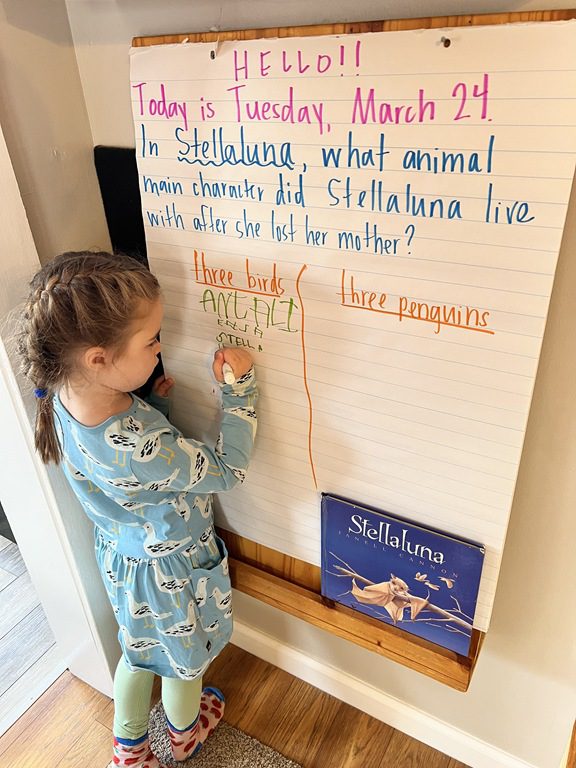 HELLO!!
Today is Tuesday, March 24.
In Stellaluna, what animal
main character did Stellaluna live
with after she lost her mother?
three birds
three penguins
STELLA
Stellaluna
JANELL CANNON